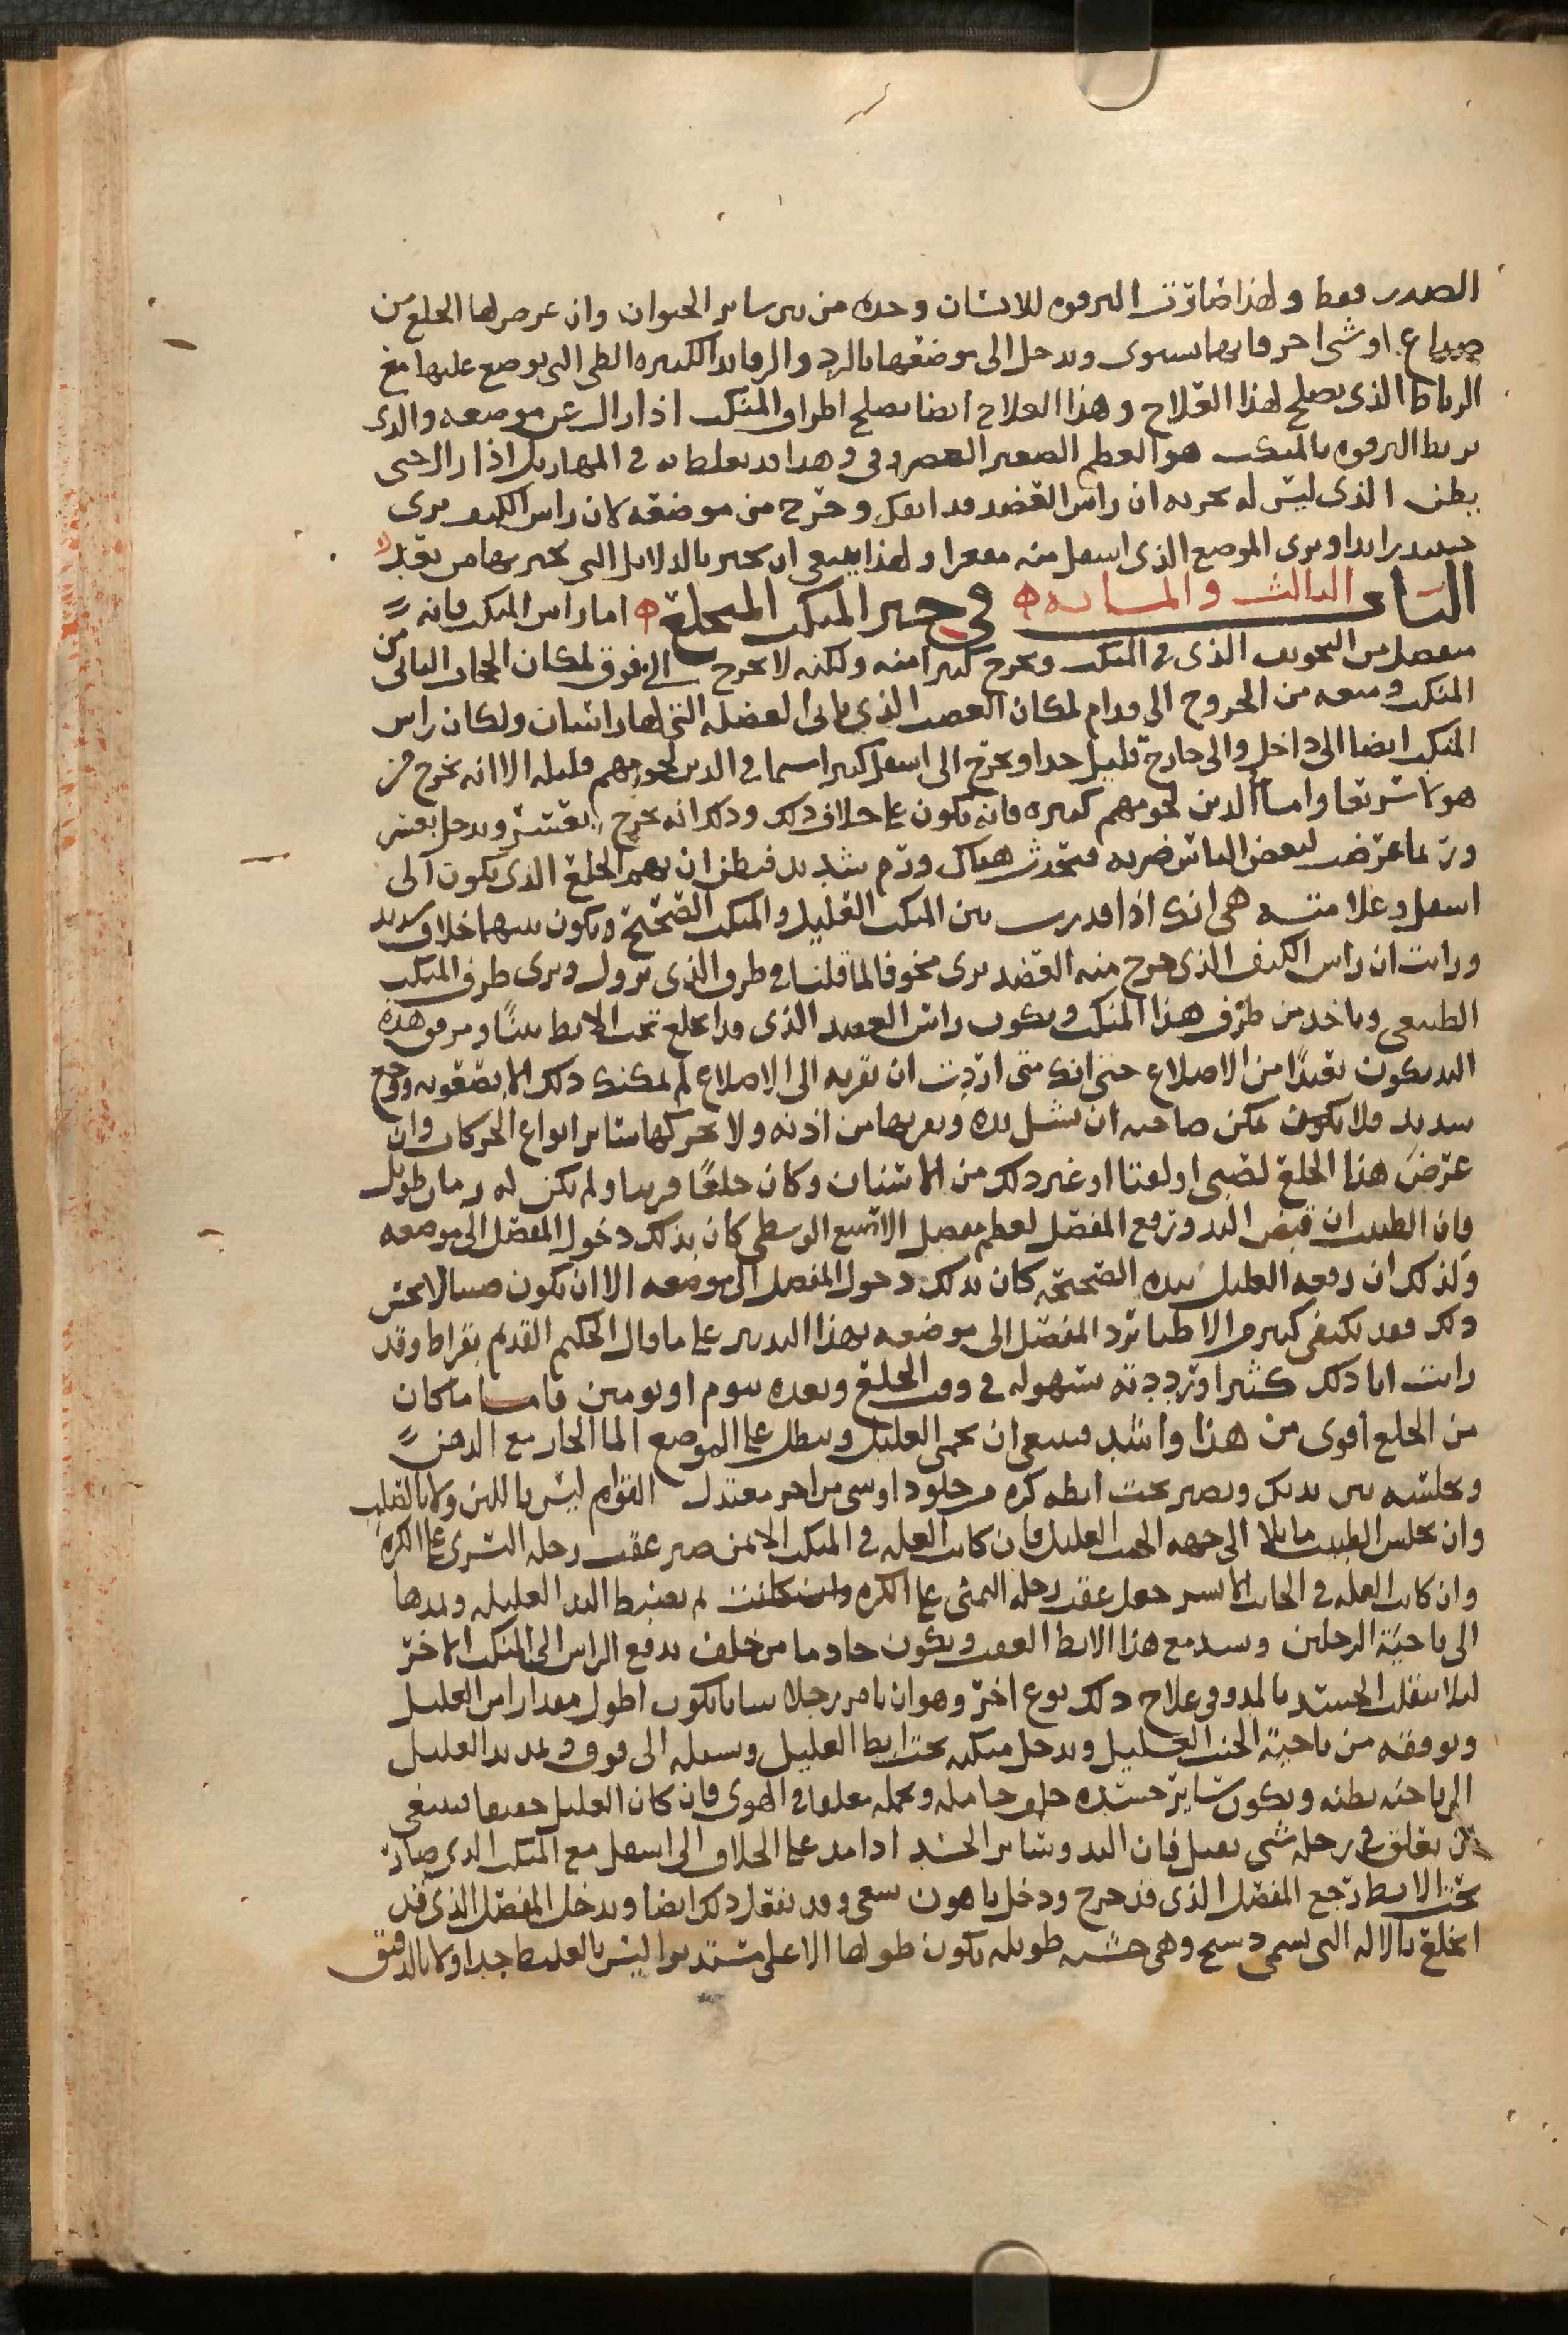 الصدر فقط ولهذا صارت الترقوه للانسان وحده من بين ساير الحيوان وان عرض لها الخلع من
صراع او شى اخر فانها تسوى وتدخل الى موضعها باليد والرفايد الكثيره الطى التى توضع عليها مع
الرباط الذى يصلح لهذا العلاج وهذا العلاج ايضا يصلح اطراف المنكب اذا زال عن موضعه والذى
يربط الترقوه بالمنكب هو العظم الصغير الغضروفى وهذا قد يغلط به فى المهازيل اذا زال حتى
يظن الذى ليس له تجربه ان راس العضد قد انفك وخرج من موضعه لان راس الكتف يرى
حينيذ رايدا ويرى الموضع الذى اسفل منه مقعرا ولهذا ينبغى ان تميز بالدلايل التى نخبر بها من بعد
الباب الثالث والمايه فى جبر المنكب المنخلع اما راس المنكب فانه
منفصل من التجويف الذى فى المنكب ويخرج كثيرا منه ولكنه لا يخرج الى فوق لمكان الحجاز الناتى من
المنكب ومنعه من الخروج الى قدام لمكان العصب الذى ياتى العضله التى لها راسان ولكان راس
المنكب ايضا الى داخل والى خارج قليل جدا ويخرج الى اسفل كثيرا سيما فى الدين لحومهم قليله الا انه يخرج من
هولا سريعا واما الدين لحومهم كثيره فانه يكون على خلاف ذلك وذلك انه يخرج بعسر ويدخل بعسر
وربما عرض لبعض الناس ضربه فيحدث هناك ورم شديد فيظن ان بهم الخلع الذى يكون الى
اسفل وعلامته هى انك اذا قدرت بين المنكب العليل والمنكب الصحيح ويكون بينهما خلاف شديد
ورايت ان راس الكتف الذى خرج منه العضد يرى مجوفا لما قلنا فى طرف الذى يزول ويرى طرف المنكب
الطبيعى وياخد من طرف هذا المنكب ويكون راس العضد الذى قد انخلع تحت الابط بينًا ومرفق هذه
اليد يكون بعيدًا من الاضلاع حتى انك متى اردت ان تقربه الى الاضلاع لم يمكنك ذلك الا بصعوبه ووجع
شديد فلا يكون يمكن صاحبه ان يشيل يده ويقربها من اذنه ولا يحركها ساير انواع الحركات وان
عرض هذا الخلع لصبى او لفتا او غير ذلك من الاسنان وكان خلعًا قريبا ولم يكن له زمان طويل
فان الطبيب ان قبض اليد ورفع المفصل لعظم مفصل الاصبع الوسطى كان بذلك دخول المفصل الى موضعه
وكذلك ان رفعه العليل بيده الصحيحه كان بذلك دخول المفصل الى موضعه الا ان يكون صبيا لا يحس
ذلك فقد يكتفى كثير من الاطبا برد المفصل الى موضعه بهذا التدبير على ما قال الحكيم القديم بقراط وقد
رايت انا ذلك كثيرا ورددته بسهوله فى وقت الخلع وبعده بيوم او يومين فاما ما كان
من الخلع اقوى من هذا واشد فينبغى ان يحمى العليل وينطل على الموضع الما الحار مع الدهن
وتجلسه بين يديك وتصير تحت ابطه كره من جلود او شى من اخر معتدل القوام ليس باللين ولا بالصلب
وان يجلس الطبيب مايلا الى جهه الجنب العليل فان كانت العله فى المنكب الايمن صير عقب رجله اليسرى على الكره
وان كانت العله فى الجانب الايسر جعل عقب رجله اليمنى على الكره وان كانت ثم يضبط اليد العليله ويمدها
الى ناحية الرجلين ويسد مع هذا الابط العقب ويكون خادما من خلف يدفع الراس الى المنكب الاخر
ليلا ينقلب الجسد بالمد وفى علاج ذلك نوع اخر وهو ان يامر رجلا شابا يكون اطول مقدارا من العليل
ويوقفه من ناحية الجنب العليل ويدخل منكبه تحت ابط العليل ويشيله الى فوق ويمد يد العليل
الى ناحيه بطنه ويكون ساير جسده خلف حامله ويحمله معلقا فى الهوى فان كان العليل خفيفا فينبغى
ان يعلق فى رجله شى ثقيل فان اليد وساير الجسد اذا مد على الخلاف الى اسفل مع المنكب الذى صار
تحت الابط رجع المفصل الذى قد خرج ودخل باهون سعى وقد نفعل ذلك ايضا ويدخل المفصل الذى قد
انخلع بالاله التى تسمى دستج وهى خشبه طويله يكون طولها الاعلى مستديرا ليس بالغليظ جدا ولا بالدقيق